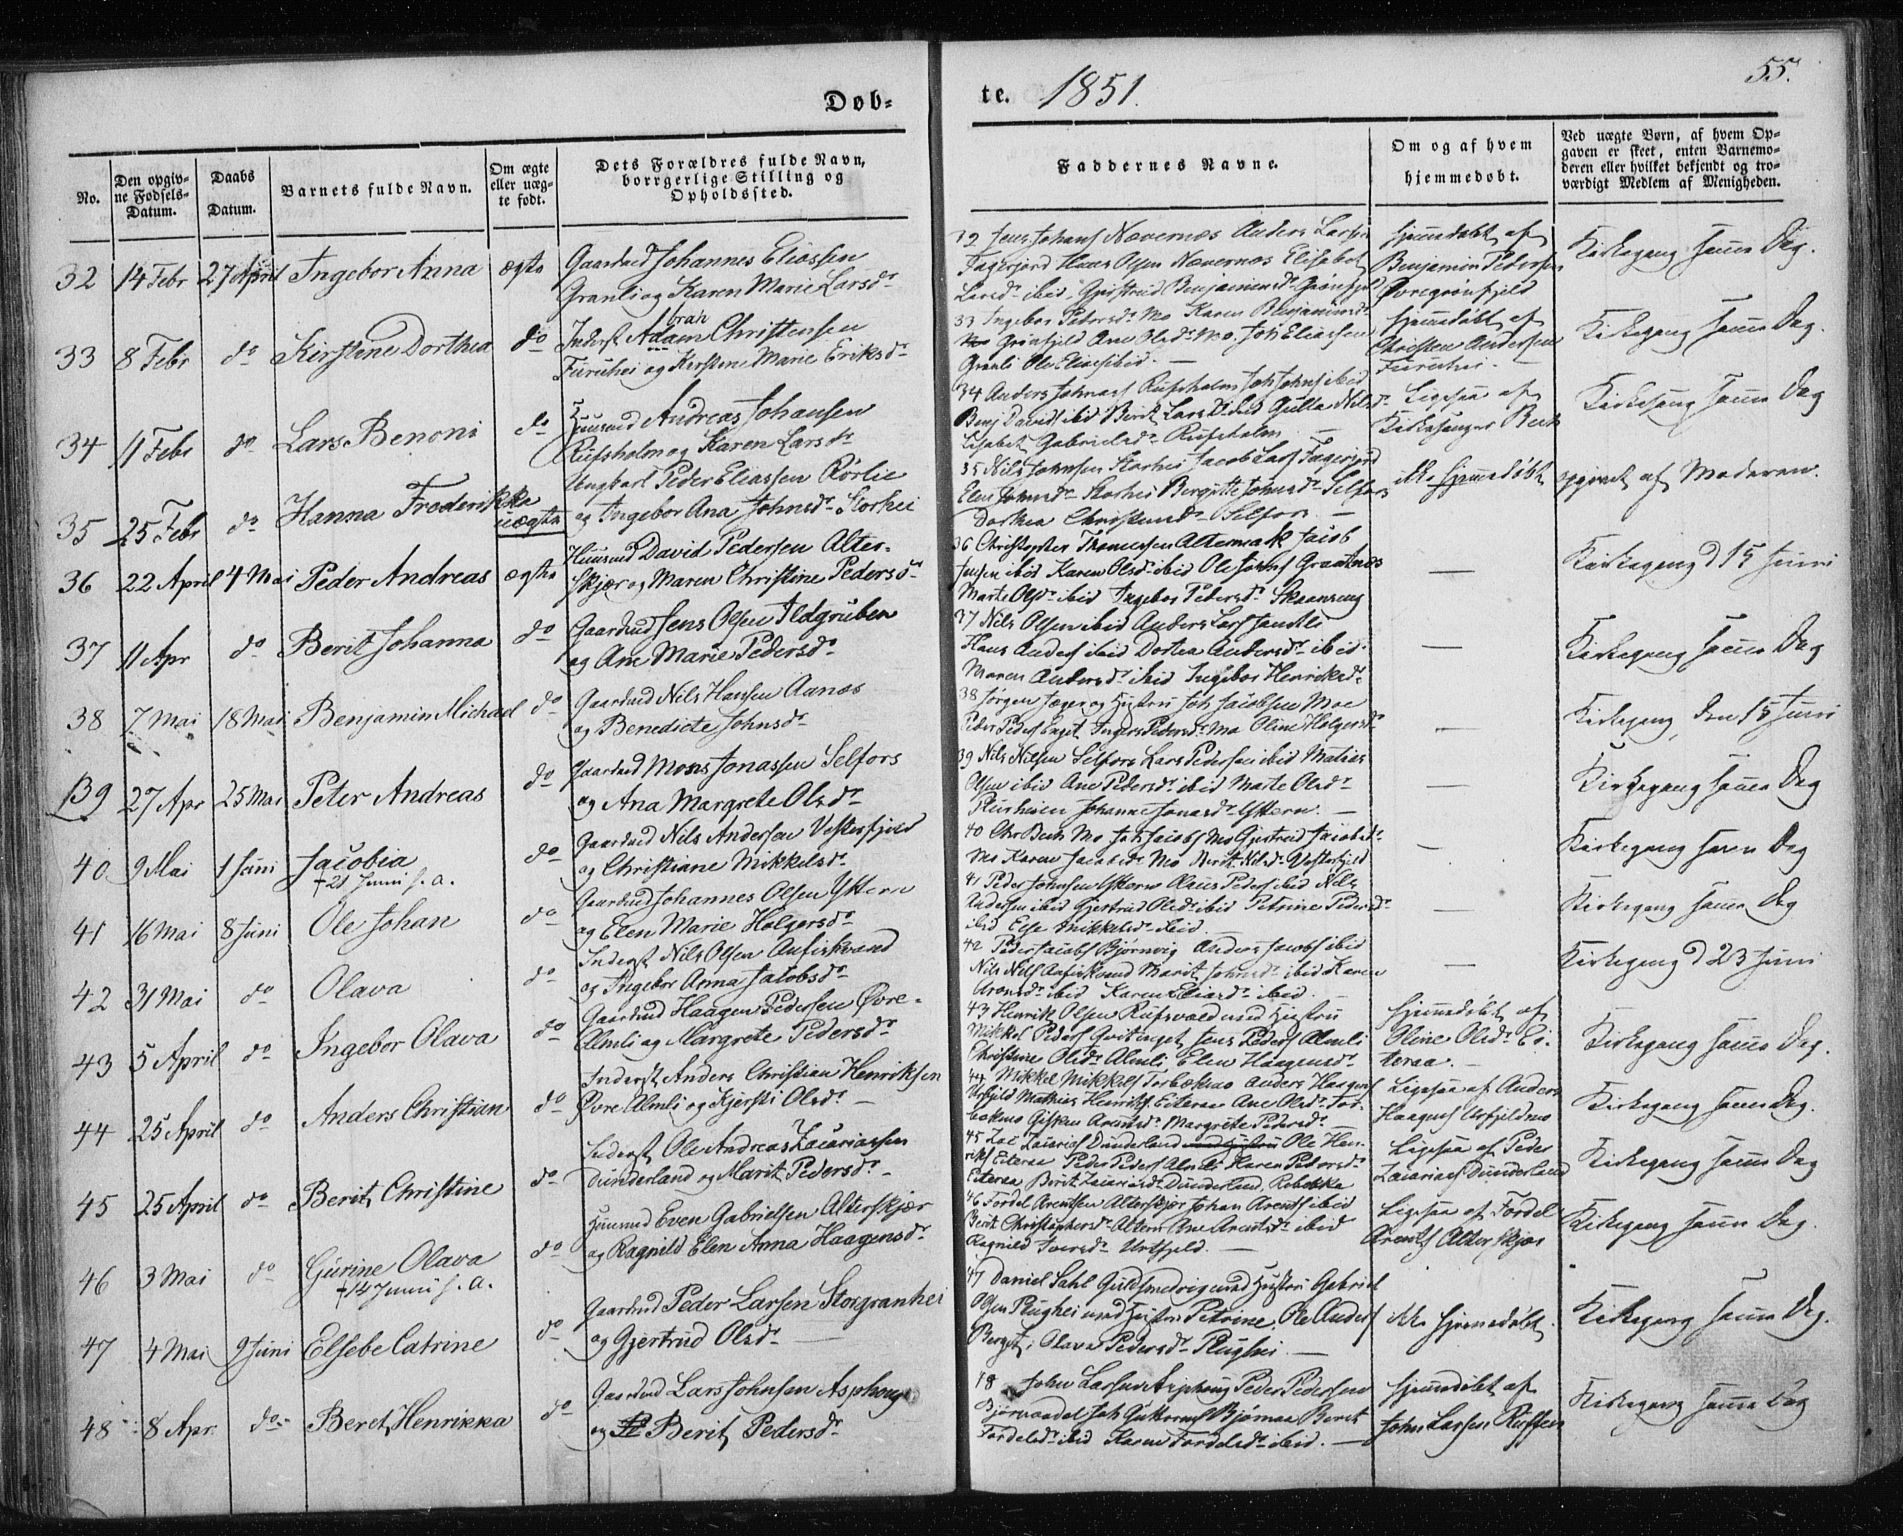 Døb-
te. 1851.
55.
No.
Den opgiv-
ne Fødsels-
Datum.
Daabs
Datum.
Barnets fulde Navn.
Om ægte
eller uæg-
te født.
Dets Forældres fulde Navn,
borrgerlige Stilling og
Opholdssted.
Faddernes Navne.
Om og af hvem
hjemmedøbt.
Ved uægte Børn, af hvem Op-
gaven er skeet, enten Barnemo-
deren eller hvilket bekjendt og tro-
værdigt Medlem af Menigheden.
32 14 Febr 27 April Ingebor Anna ægte
Gaardmd Johannes Eliassen
Granli og Karen Marie Larsdr
32 Jens Johans Nævernæs Anders Larsen
Fagerjord Hans Olsen Nævernæs Elisabet
Larsdr ibid, Benjaminsdr Grønfjeld
Hjemmedøbt af
Benjamin Pedersen
Øvregrønfjeld
Kirkegang samme Dag.
33 8 Febr do Kirstene Dorthea do
Inderst Adam Christensen
brah
Furuhei og Kirstene Marie Eriksdr
33 Ingebor Petersdr Mo Karen Benjaminsdr
Grønfjeld Ane Olsdr Mo, Joh Eliassen
Granli Ole Elias ibid. —
Hjemmedøbt af
Christen Andersen
Furuhei. —
Kirkegang samme Dag.
34 11 Febr do Lars Benoni do
Huusmd Andreas Johansen
Rufsholm og Karen Larsdr
34 Anders Johnas Rufsholm Joh Johns ibid
Benj Davids ibid Berit Larsdr ibid Gulla Nilsdr
Lisabet Gabrielsdr Rufsholm —
Ligesaa af
Kirkesanger Bech
Kirkegang samme Dag
35 25 Febr do Hanna Frederikke uægte
Ungkarl Peder Eliassen Rørlie
og Ingebor Ana Johnsdr Storhei
35 Nils Johnsen Storhei Jacob Lars Fagerjord
Elen Johnsdr Storhei Bergitte Johnsdr Selfors
Dorthea Christensdr Selfors. —
ikke hjemmedøbt
opgivet af Moderen.
36 22 April 4 Mai Peder Andreas ægte
Huusmd David Pedersen Alter-
skjær og Maren Christine Pedersdr
36 Christopher Thomessen Altermark Jacob
Jensen ibid Karen Olsdr ibid Ole Johns Graatnæs
Marte Olsdr ibid Ingebor Pedersdr
—
Kirkegang d 15 Juni
37 11 Apr do Berit Johanna do
Gaardmd Jens Olsen Ildgruben
og Ane Marie Pedersdr
37 Nils Olsen ibid Anders Lars
Hans Anders ibid Dortea Andersdr ibid.
Maren Andersdr ibid Ingebor Henriksdr
—
Kirkegang samme Dag
38 7 Mai 18 Mai Benjamin Michael do
Gaardmd Nils Hansen Aanæs
og Benedicte Johnsdr
38 Jørgen Jæger og Hustru Joh Jacobsen Moe
Peder Peders Enget Inger Pedersdr Mo Oline Holgersdr
—
Kirkegang den 15 Juni
39 27 Apr 25 Mai Peter Andreas do
Gaardmd Mons Jonassen Selfors
og Ana Margrete Olsdr
39 Nils Nilsen Selfors Lars Pedersen ibid Matias
Olsen ibid Ane Pedersdr ibid Marte Olsdr
Plurheien Johanne Jonasdr Ytteren —
—
Kirkegang samme Dag
40 9 Mai 1 Juni Jacobia do
+ 21 Juni s. a.
Gaardmd Nils Andersen Vesterfjeld
og Christiane Mikkelsdr
40 Chr Bech Mo Joh Jacobs Mo Gjertrud Jacobsdr
Mo Karen Jacobsdr Mo Berit Nilsdr Vesterfjeld
—
Kirkegang samme Dag
41 16 Mai 8 Juni Ole Johan do
Gaardmd Johannes Olsen Yttern
og Elen Marie Holgersdr
41 Peder Johnsen Yttern Peders ibid Nils
Andersen ibid Gjertrud Olsdr ibid Petrine Pedersdr
ibid Else Mikkelsdr ibid.
—
Kirkegang samme Dag
42 31 Mai do Olava do
Inderst Nils Olsen Aufiskvand
og Ingebor Anna Jacobsdr
42 Peder Jacobs Bjørnvig Anders Jacobs ibid
Nils Nils Aufiskvand Marit Johnsdr ibid Karen
Aronsdr ibid Karen Eliasdr ibid. —
—
Kirkegang d 23 Juni
43 5 April do Ingebor Olava do
Gaardmd Haagen Pedersen Øvre-
Almli og Margrete Pedersdr
43 Henrik Olsen Rufsvold med Hustru
Mikkel Peders Qvitinget Jens Peders Almli
Christine Olsdr Almli Elen Haagensdr
Hjemmedøbt af
Oline Olsdr Ei-
teraa. —
Kirkegang samme Dag.
44 25 April do Anders Christian do
Inderst Anders Christian Henriksen
Øvre Almli og Kjersti Olsdr —
44 Mikkel Mikkels Torbækmo Anders Haagens
Urfjeld Mathias Henriks Eiteraa Ane Olsdr Tor-
bækmo Gisken Arntsdr Margrete Pedersdr —
Ligesaa af Anders
Haagens Urfjeldmo
Kirkegang samme Dag.
45 25 April do Berit Christine do
Inderst Ole Andreas Zacariassen
Dunderland og Marit Pedersdr —
45 Zac Zacarias Dunderland Ole Hen-
riks Eiteraa Peder Peders Almli Karen Pedersdr
Eiteraa Berit Zacariasdr Dunderland, Rebekka
Ligesaa af Peder
Zacarias Dunderland
Kirkegang samme Dag
46 3 Mai do Gurine Olava do
+ 14 Juni s. a.
Huusmd Even Gabrielsen Alterskjær
og Ragnild Elen Anna Haagensdr
46 Fordel Arentsen Alterskjær Johan Arents ibid
Berit Christophersdr Alteren Ane Arentsdr ibid
Ragnild Iversdr Urtfjeld. —
Ligesaa af Fordel
Arents Alterskjær
Kirkegang samme Dag.
47 4 Mai 9 Juni Elsebe Catrine do
Gaardmd Peder Larsen Storgranhei
og Gjertrud Olsdr —
47 Daniel Dahl Guldsmedvig med Hustru Gabriel
Olsen Plughei med Hustru Petrine, Ole Anders
Berget, Olava Pedersdr Plughei —
ikke hjemmedøbt.
Kirkegang samme Dag.
48 8 Apr. do Beret Henrikka do
Gaardmd Lars Johnsen Asphaug
og Berit Pedersdr
48 John Larsen Asphaug Peder Pedersen
Bjørnaadal Joh Guttorms Bjørnaa Berit
Fordelsdr ibid Karen Fordelsdr ibid. —
Hjemmedøbt af
John Larsen
Kirkegang samme Dag